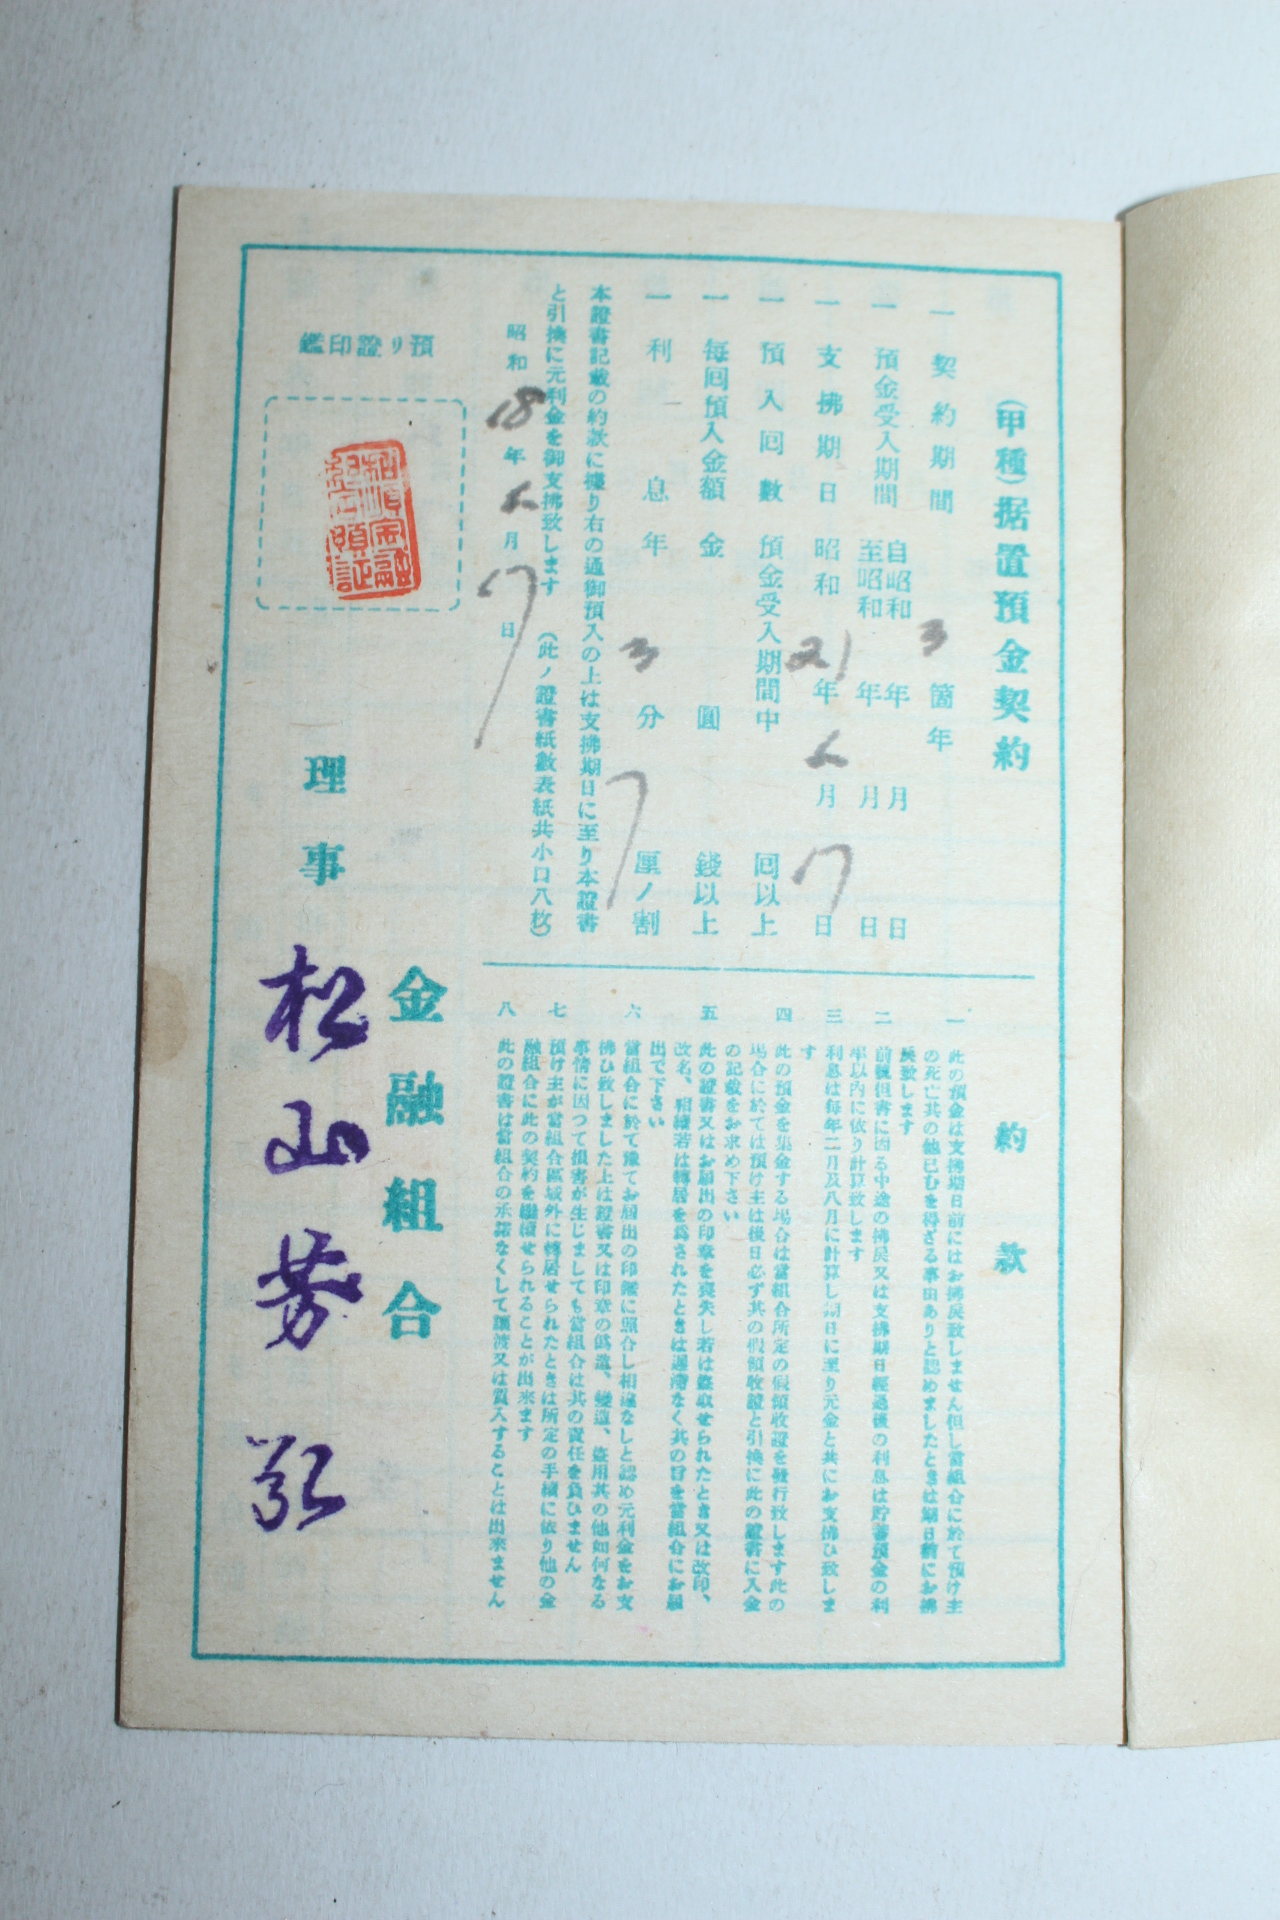 (甲種)据置預金契約
一 契約期間 3 箇年
一 預金受入期間 自昭和 年 月 日
至昭和 年 月 日
一 支拂期日 昭和 21 年 5 月 7 日
一 預入回數 預金受入期間中 回以上
一 每回預入金額 金 圓 錢以上
一 利息 年 3 分 7 厘ノ割
本證書記載の約款に據り右の通御預入の上は支拂期日に至り本證書
と引換に元利金を御支拂致します (此ノ證書紙數表紙共小口八枚)
昭和 18 年 5 月 7 日
預リ證印鑑
金融組合
理事 松山芳弘
約款
一 此の預金は支拂期日前にはお拂戻致しません但し當組合に於て預け主
の死亡其の他已むを得ざる事由ありと認めましたときは期日前にお拂
戻致します
二 前號但書に因る中途の拂戻又は支拂期日經過後の利息は貯蓄預金の利
率以內に依り計算致します
三 利息は每年二月及八月に計算し期日に至り元金と共にお支拂ひ致しま
す
四 此の預金を集金する場合は當組合所定の假領收證を發行致します此の
場合に於ては預け主は後日必ず其の假領收證と引換に此の證書に入金
の記載をお求め下さい
五 此の證書又はお屆出の印章を喪失し若は盜取せられたとき又は改印、
改名、相續若は轉居を爲されたときは遲滯なく其の旨を當組合にお屆
出で下さい
六 當組合に於て豫てお屆出の印鑑に照合し相違なしと認め元利金をお支
拂ひ致しました上は證書又は印章の僞造、變造、盜用其の他如何なる
事情に因つて損害が生じましても當組合は其の責任を負ひません
七 預け主が當組合區域外に轉居せられたときは所定の手續に依り他の金
融組合に此の契約を繼續せられることが出來ます
八 此の證書は當組合の承諾なくして讓渡又は質入することは出來ません